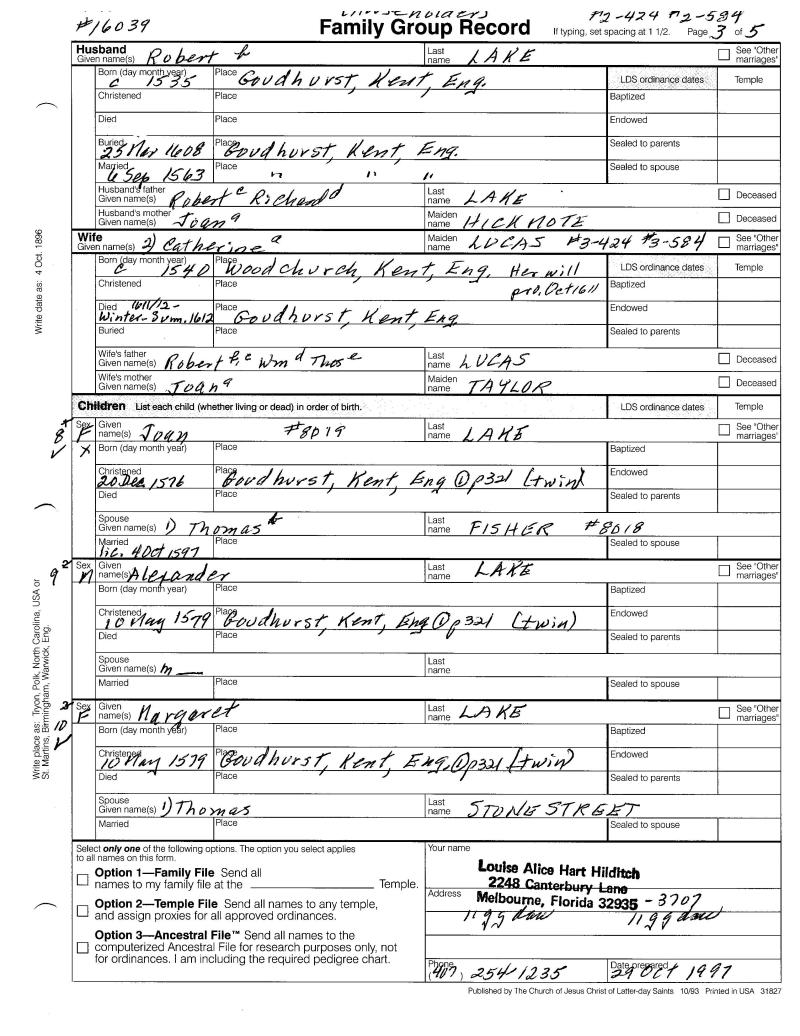 #16039
#2-424 #2-584
Family Group Record
If typing, set spacing at 1 1/2. Page 3 of 5
Husband
Given name(s) Robert b
Last name LAKE
See "Other marriages"
Born (day month year) c 1535
Place Goudhurst, Kent, Eng.
LDS ordinance dates
Temple
Christened
Place
Baptized
Died
Place
Endowed
Buried 25 Mar 1608
Place Goudhurst, Kent, Eng.
Sealed to parents
Married 6 Sep 1563
Place " " "
Sealed to spouse
Husband's father
Given name(s) Robert c Richard d
Last name LAKE
Deceased
Husband's mother
Given name(s) Joan a
Maiden name HICKMOTE
Deceased
Wife
Given name(s) 2) Catherine a
Maiden name LUCAS #3-424 #3-584
See "Other marriages"
Born (day month year) c 1540
Place Woodchurch, Kent, Eng. Her will
pro. Oct 1611
LDS ordinance dates
Temple
Christened
Place
Baptized
Died 1611/12-
Winter-Sum. 1612
Place Goudhurst, Kent, Eng
Endowed
Buried
Place
Sealed to parents
Wife's father
Given name(s) Robert b, c Wm d Thos e
Last name LUCAS
Deceased
Wife's mother
Given name(s) Joan a
Maiden name TAYLOR
Deceased
Children List each child (whether living or dead) in order of birth.
LDS ordinance dates
Temple
8
Sex F
Given name(s) Joan #8019
Last name LAKE
See "Other marriages"
X
Born (day month year)
Place
Baptized
Christened 20 Dec 1576
Place Goudhurst, Kent, Eng ① p321 (twin)
Endowed
Died
Place
Sealed to parents
Spouse
Given name(s) 1) Thomas b
Last name FISHER #8018
Married lic. 4 Oct 1597
Place
Sealed to spouse
9
Sex M
Given name(s) Alexander
Last name LAKE
See "Other marriages"
Born (day month year)
Place
Baptized
Christened 10 May 1579
Place Goudhurst, Kent, Eng ① p321 (twin)
Endowed
Died
Place
Sealed to parents
Spouse
Given name(s) m
Last name
Married
Place
Sealed to spouse
10
Sex F
Given name(s) Margaret
Last name LAKE
See "Other marriages"
Born (day month year)
Place
Baptized
Christened 10 May 1579
Place Goudhurst, Kent, Eng. ① p321 (twin)
Endowed
Died
Place
Sealed to parents
Spouse
Given name(s) 1) Thomas
Last name STONESTREET
Married
Place
Sealed to spouse
Write date as: 4 Oct. 1896
Write place as: Tryon, Polk, North Carolina, USA or
St. Martins, Birmingham, Warwick, Eng.
Select only one of the following options. The option you select applies
to all names on this form.
Option 1—Family File Send all
names to my family file at the Temple.
Option 2—Temple File Send all names to any temple,
and assign proxies for all approved ordinances.
Option 3—Ancestral File™ Send all names to the
computerized Ancestral File for research purposes only, not
for ordinances. I am including the required pedigree chart.
Your name
Louise Alice Hart Hilditch
2248 Canterbury Lane
Address
Melbourne, Florida 32935 - 3707
Phone (407) 254 1235
Date prepared 29 Oct 1997
Published by The Church of Jesus Christ of Latter-day Saints 10/93 Printed in USA 31827